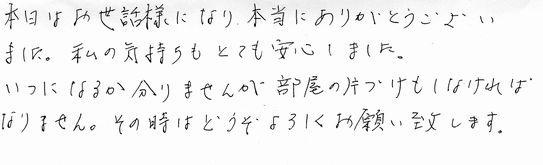 本日はお世話様になり、本当にありがとうござい
ました。私の気持ちもとても安心しました。
いつになるか分りませんが部屋の片づけもしなければ
なりません。その時はどうぞよろしくお願い致します。